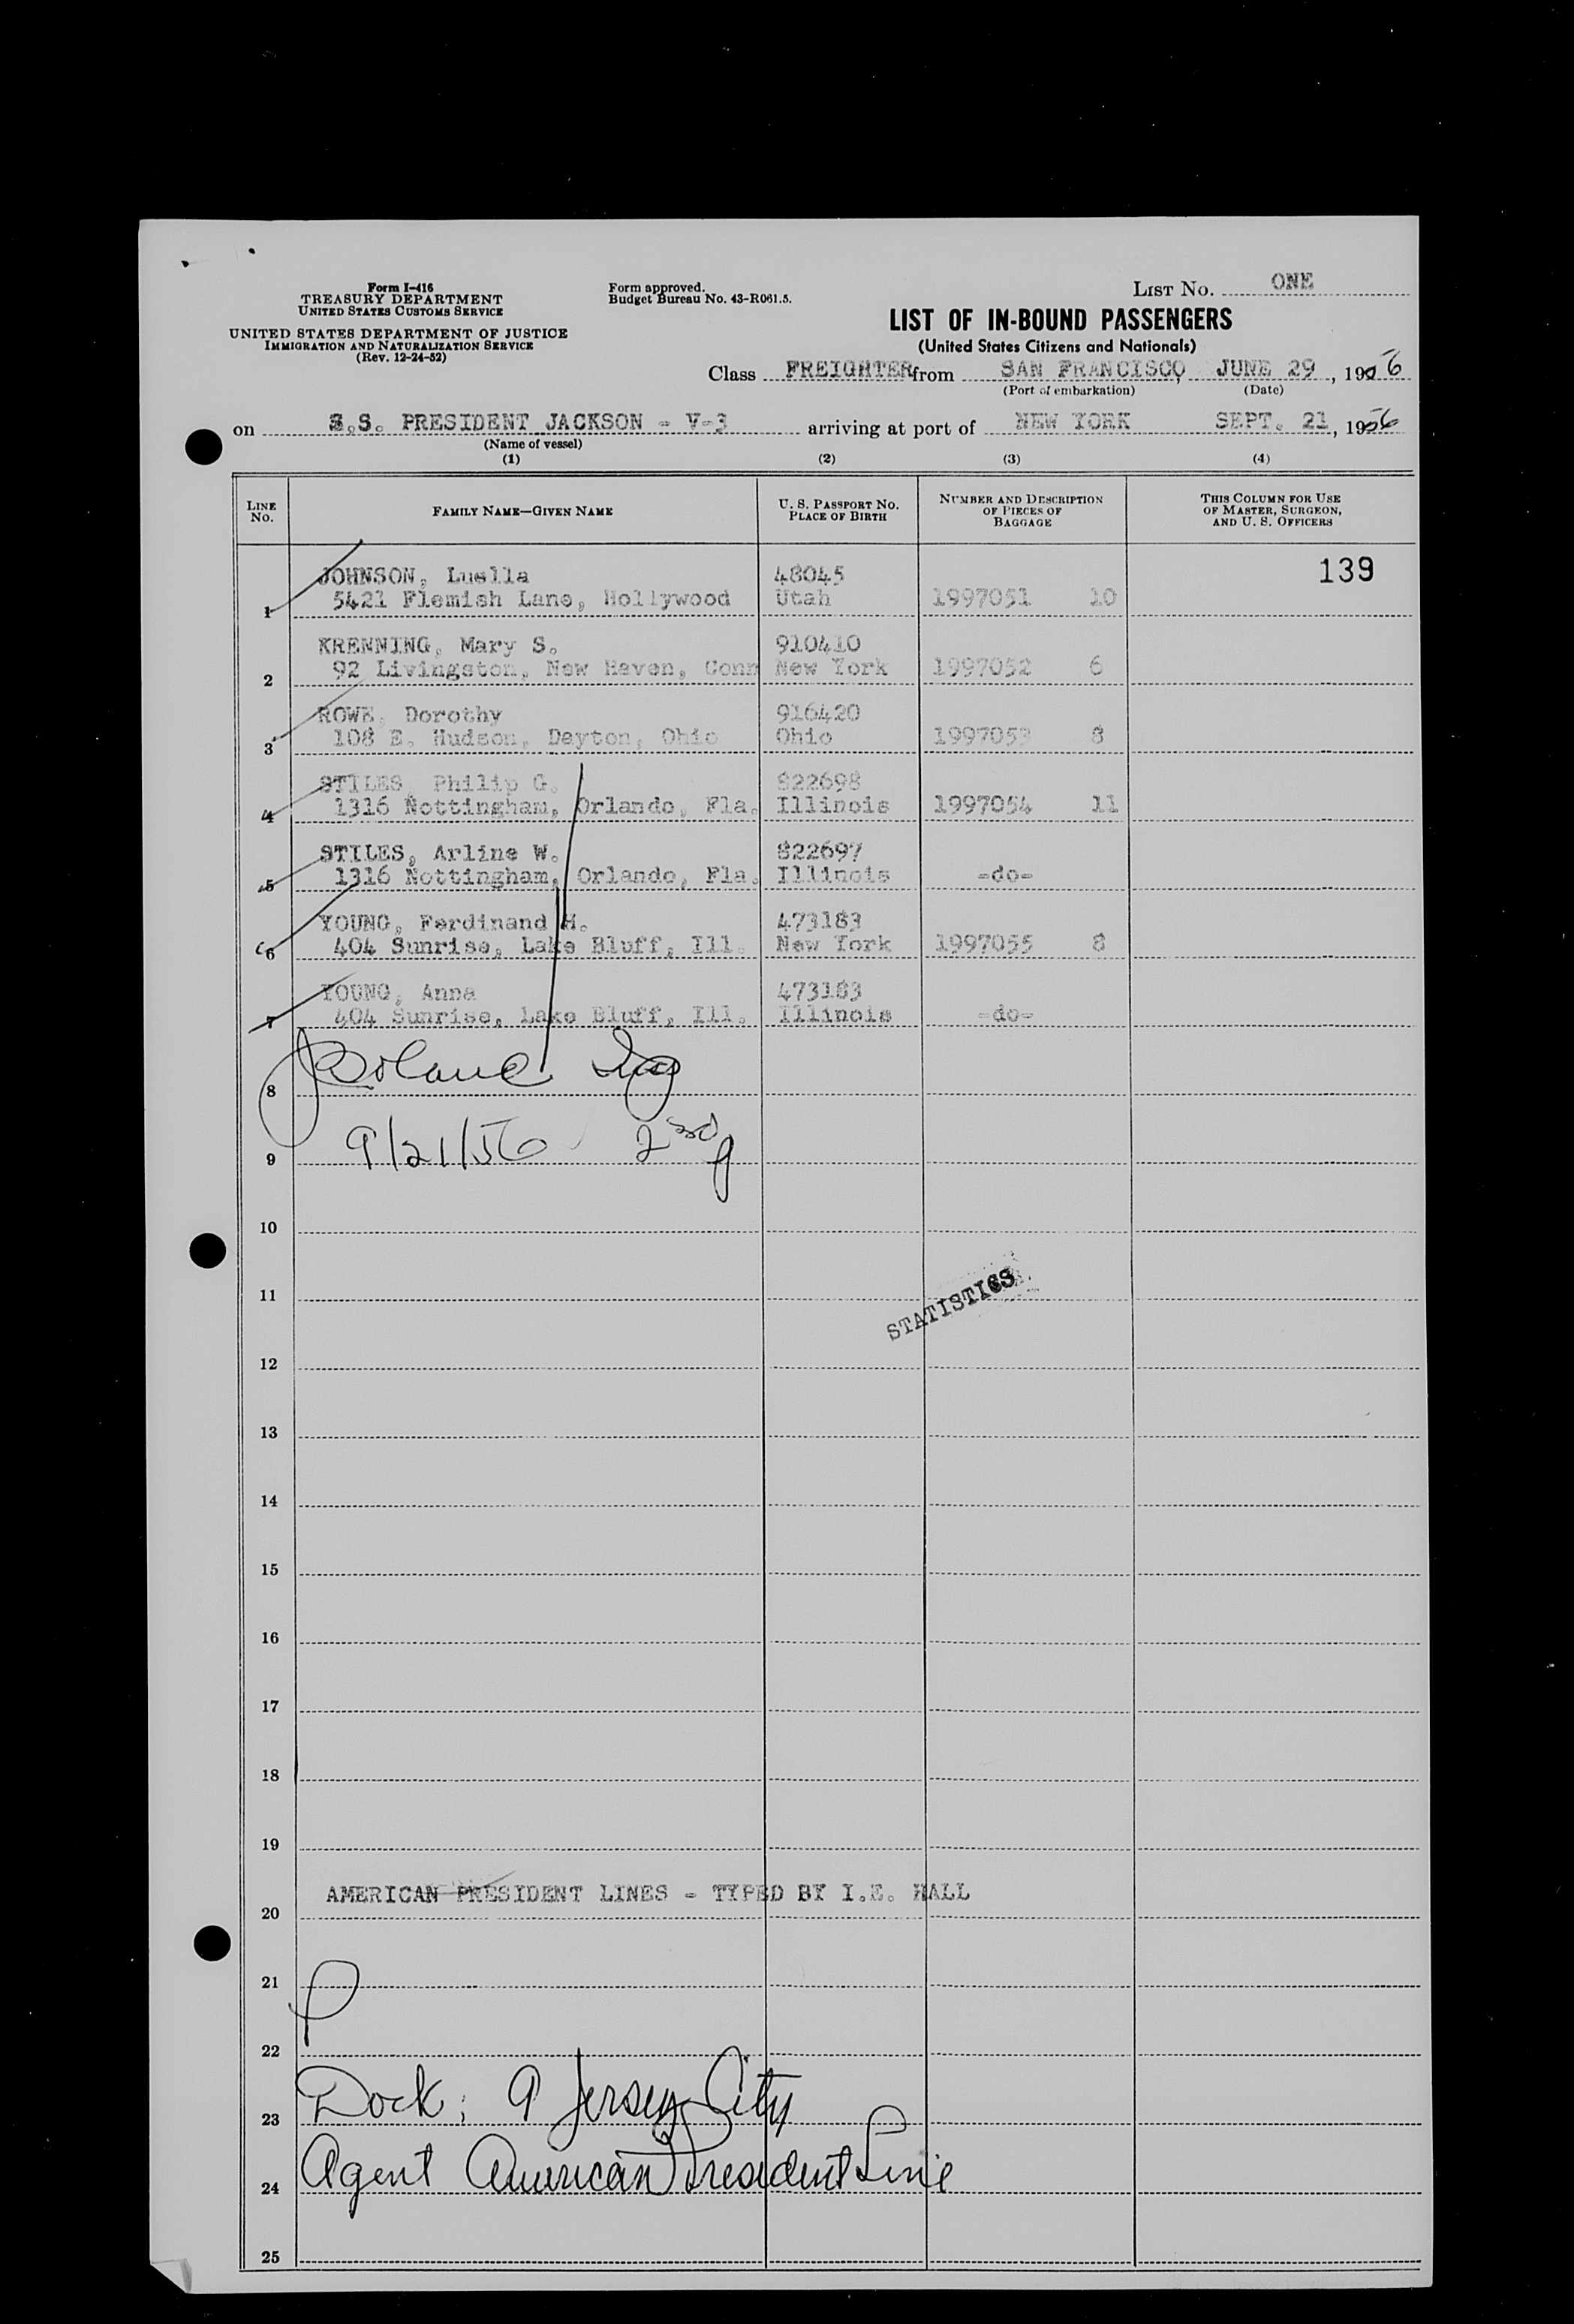 Form I-416
TREASURY DEPARTMENT
UNITED STATES CUSTOMS SERVICE
UNITED STATES DEPARTMENT OF JUSTICE
IMMIGRATION AND NATURALIZATION SERVICE
(Rev. 12-24-52)
Form approved.
Budget Bureau No. 43-R061.5.
LIST NO. ONE
LIST OF IN-BOUND PASSENGERS
(United States Citizens and Nationals)
Class FREIGHTER from SAN FRANCISCO, JUNE 29, 1956
(Port of embarkation) (Date)
on S.S. PRESIDENT JACKSON - V-3 arriving at port of NEW YORK SEPT. 21, 1956
(Name of vessel)
(1) (2) (3) (4)
LINE NO. FAMILY NAME—GIVEN NAME U. S. PASSPORT NO. PLACE OF BIRTH NUMBER AND DESCRIPTION OF PIECES OF BAGGAGE THIS COLUMN FOR USE OF MASTER, SURGEON, AND U. S. OFFICERS
JOHNSON, Luella 48045 139
1 5421 Flemish Lane, Hollywood Utah 1997051 10
KRENNING, Mary S. 910410
2 92 Livingston, New Haven, Conn New York 1997052 6
ROWE, Dorothy 916420
3 108 E. Hudson, Dayton, Ohio Ohio 1997053 8
STILES, Philip G. 822698
4 1316 Nottingham, Orlando, Fla. Illinois 1997054 11
STILES, Arline W. 822697
5 1316 Nottingham, Orlando, Fla. Illinois -do-
YOUNG, Ferdinand H. 473183
6 404 Sunrise, Lake Bluff, Ill. New York 1997055 8
YOUNG, Anna 473183
7 404 Sunrise, Lake Bluff, Ill. Illinois -do-
8
9 9/21/56
10
11 STATISTICS
12
13
14
15
16
17
18
19
AMERICAN PRESIDENT LINES - TYPED BY I.E. HALL
20
21
22
23 Dock: 9 Jersey City
24 Agent American President Line
25